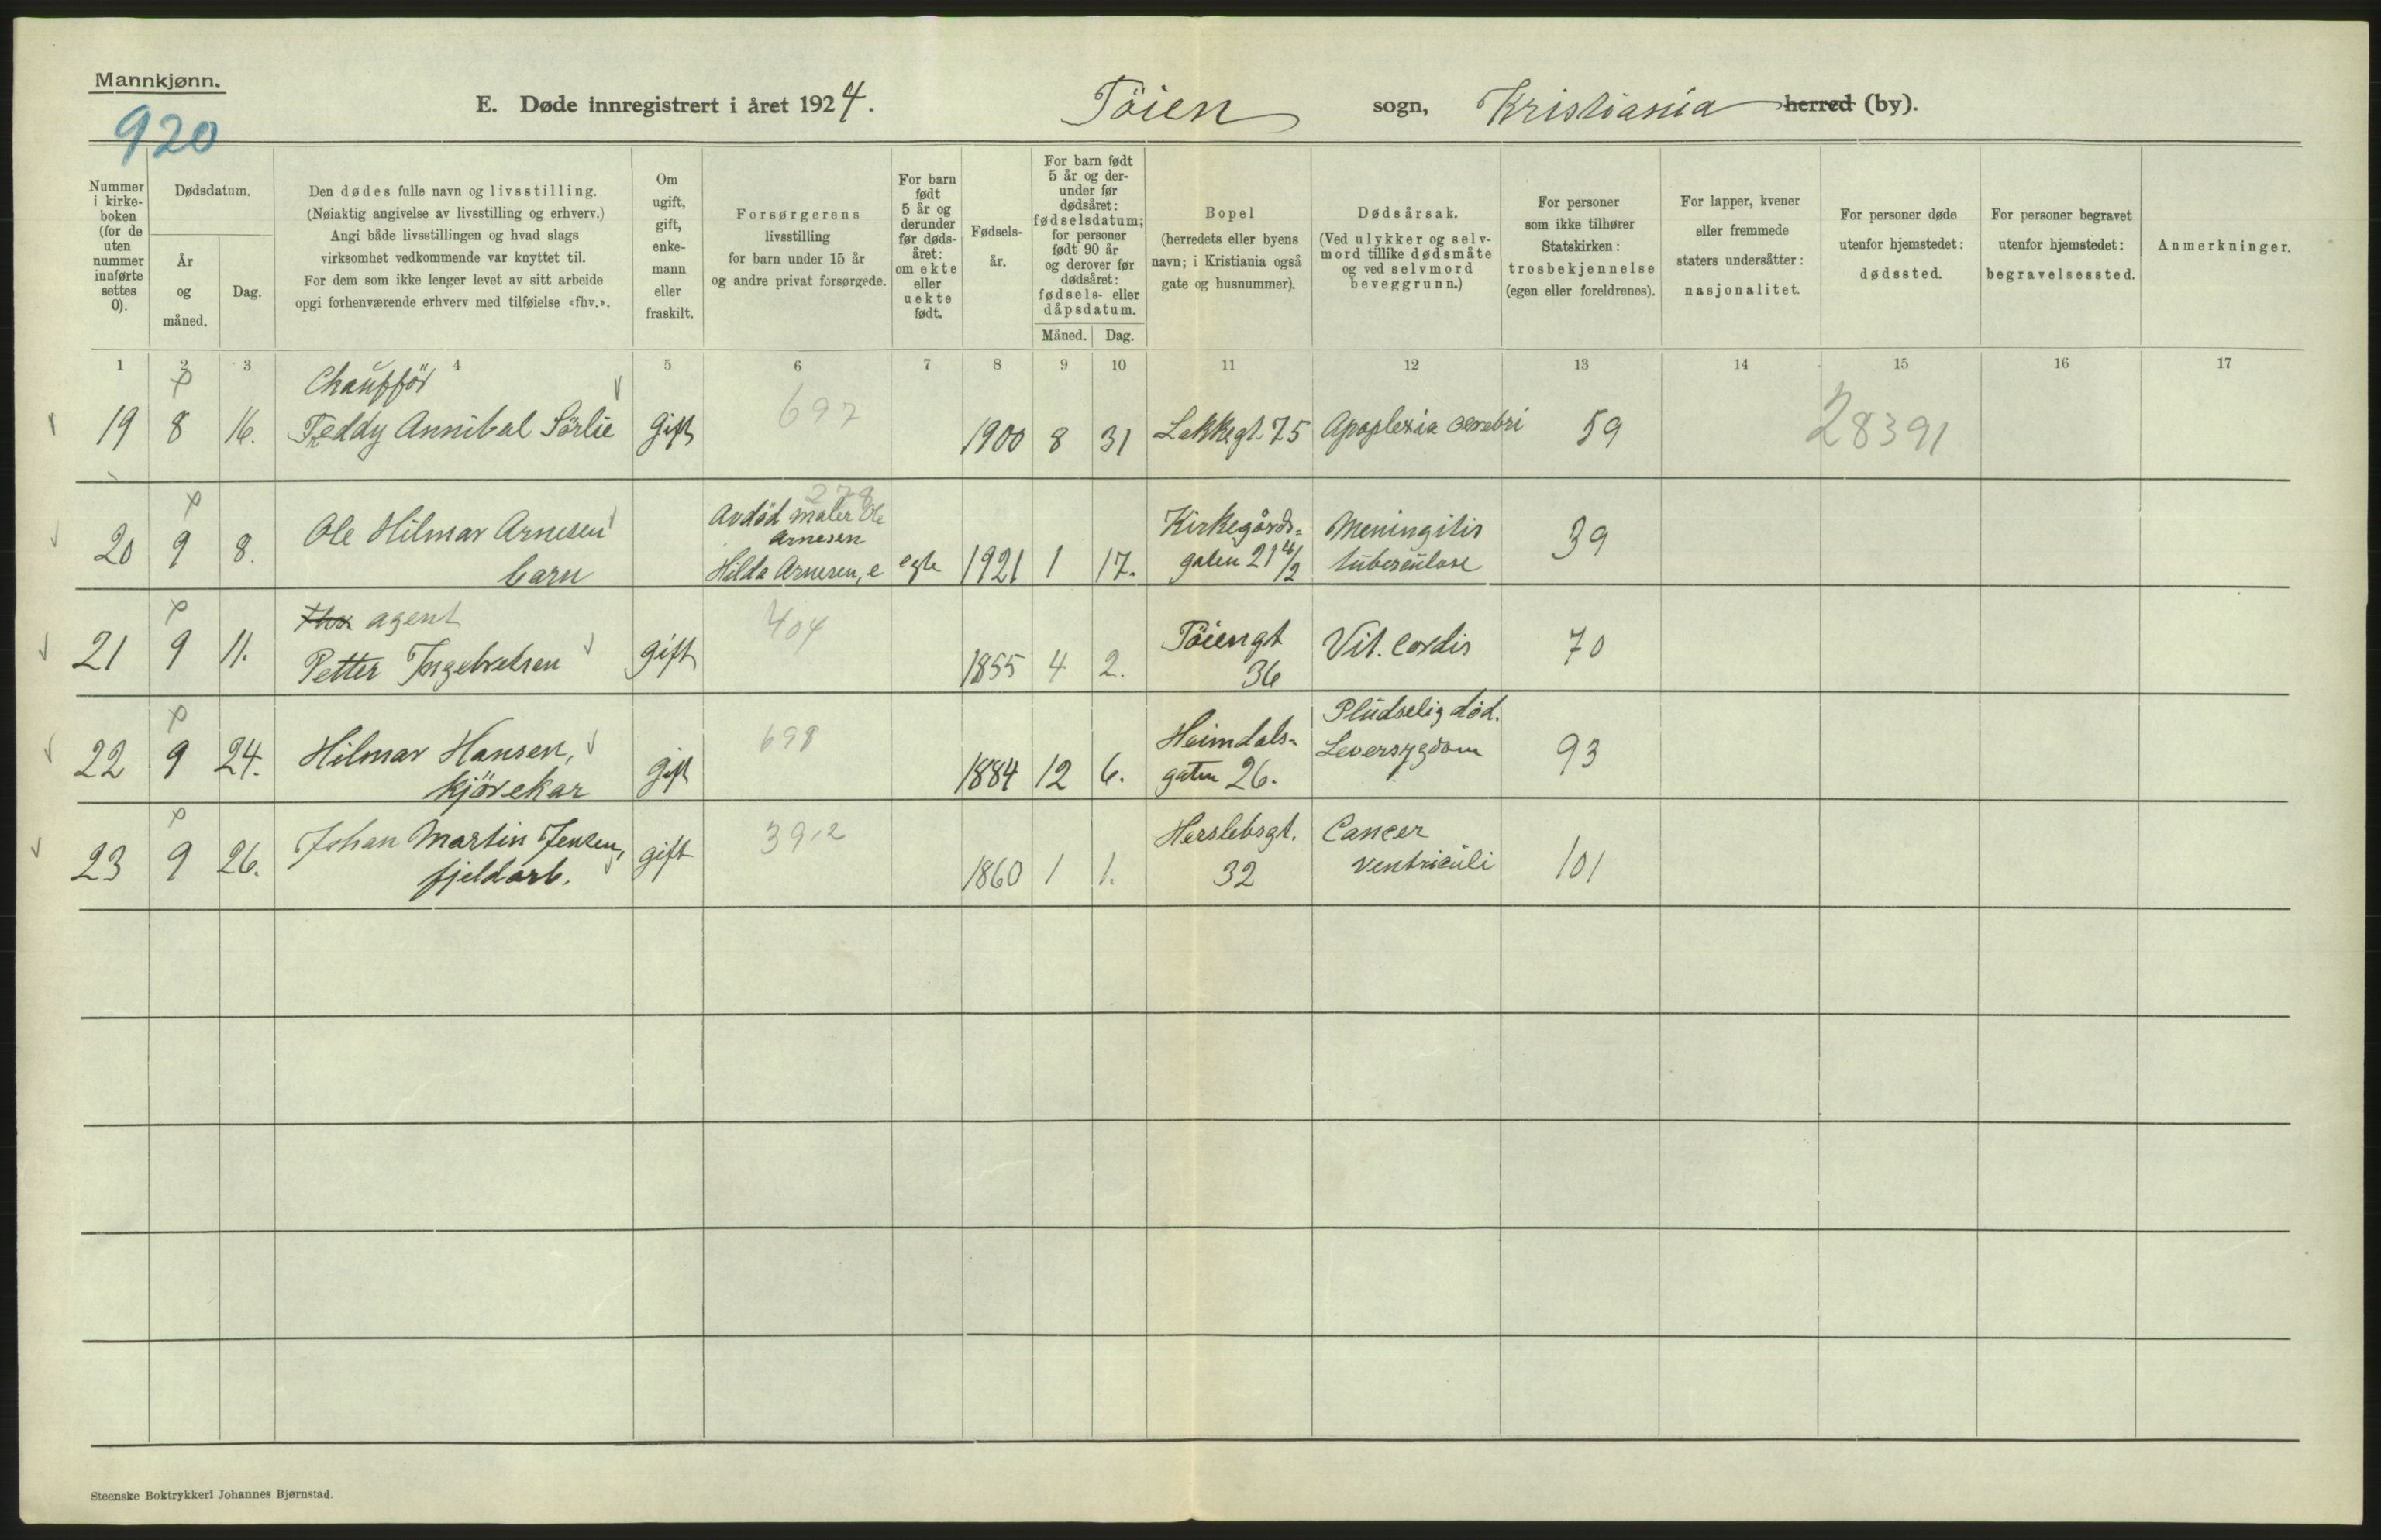 Mannkjønn.
920
E. Døde innregistrert i året 1924. Töien sogn, Kristiania herred (by).
Nummer i kirke-boken (for de uten nummer innførte settes 0).
Dødsdatum.
År og måned.
Dag.
Den dødes fulle navn og livsstilling.
(Nøiaktig angivelse av livsstilling og erhverv.)
Angi både livsstillingen og hvad slags
virksomhet vedkommende var knyttet til.
For dem som ikke lenger levet av sitt arbeide
opgi forhenværende erhverv med tilføielse «fhv.».
Om ugift, gift, enke-mann eller fraskilt.
Forsørgerens
livsstilling
for barn under 15 år
og andre privat forsørgede.
For barn født 5 år og derunder før døds-året: om ekte eller uekte født.
Fødsels-år.
For barn født 5 år og der-under før dødsåret: fødselsdatum; for personer født 90 år og derover før dødsåret: fødsels- eller dåpsdatum.
Måned.
Dag.
Bopel
(herredets eller byens
navn; i Kristiania også
gate og husnummer).
Dødsårsak.
(Ved ulykker og selv-
mord tillike dødsmåte
og ved selvmord
beveggrunn.)
For personer
som ikke tilhører
Statskirken:
trosbekjennelse
(egen eller foreldrenes).
For lapper, kvener
eller fremmede
staters undersåtter:
nasjonalitet.
For personer døde
utenfor hjemstedet:
dødssted.
For personer begravet
utenfor hjemstedet:
begravelsessted.
Anmerkninger.
1 2 3 4 5 6 7 8 9 10 11 12 13 14 15 16 17
Chaufför
19 8 16. Freddy Annibal Sörlie gift 697 1900 8 31 Lakkegt. 75 Apoplexia cerebri 59 28391
278
20 9 8. Ole Hilmar Arnesen
barn
Avdöd maler Ole
Arnesen
Hilda Arnesen, e
egte 1921 1 17.
Kirkegårds-
gaten 21 4/2
Meningitis
tuberculose
39
Fhv. agent
21 9 11. Petter Ingebretsen gift 404 1855 4 2.
Töiengt
36
Vit. cordis 70
22 9 24. Hilmar Hansen,
kjörekar
gift 698 1884 12 6.
Heimdals-
gaten 26.
Pludselig död.
Leversygdom
93
23 9 26. Johan Martin Jensen,
fjeldarb.
gift 392 1860 1 1.
Herslebsgt.
32
Cancer
ventriculi
101
Steenske Boktrykkeri Johannes Bjørnstad.